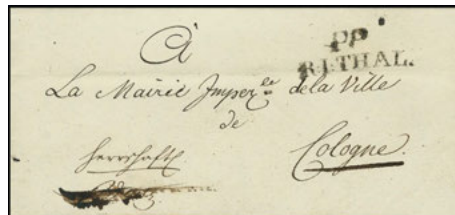 À
PP
R.ITHAL.
La Mairie Imper.le de la Ville
de
Cologne
herrschaftl